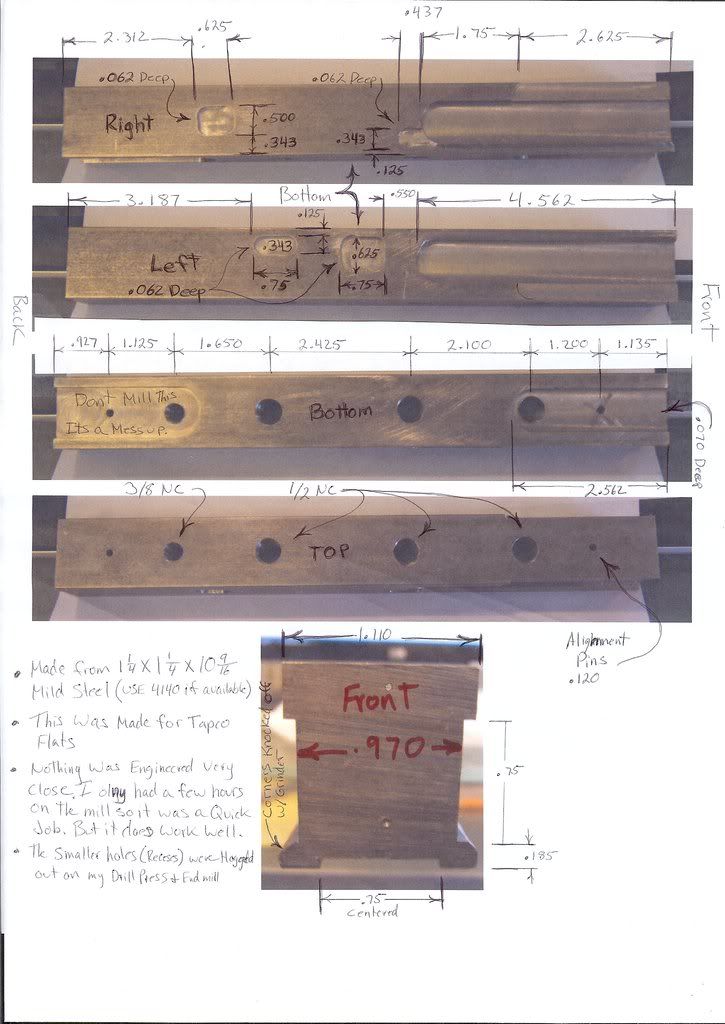 .437
.625
2.312
1.75
2.625
.062 Deep
.062 Deep
Right
.500
.343
.343
.125
Bottom
3.187
.550
4.562
.125
Left
.343
.625
.062 Deep
.75
.75
Back
Front
.927
1.125
1.650
2.425
2.100
1.200
1.135
Dont Mill This
Its a Messup.
Bottom
.070 Deep
2.562
3/8 NC
1/2 NC
TOP
Alignment
Pins
.120
1.110
Front
.970
Corners Knocked off
w/Grinder
.75
.185
.75
centered
• Made from 1 1/4 X 1 1/4 X 10 9/16
Mild Steel (USE 4140 if available)
• This Was Made for Tapco
Flats
• Nothing Was Engineered Very
Close. I olny had a few hours
on the mill so it was a Quick
Job. But it does work well.
• The Smaller holes (Recess) were Hogged
out on my Drill Press & End mill